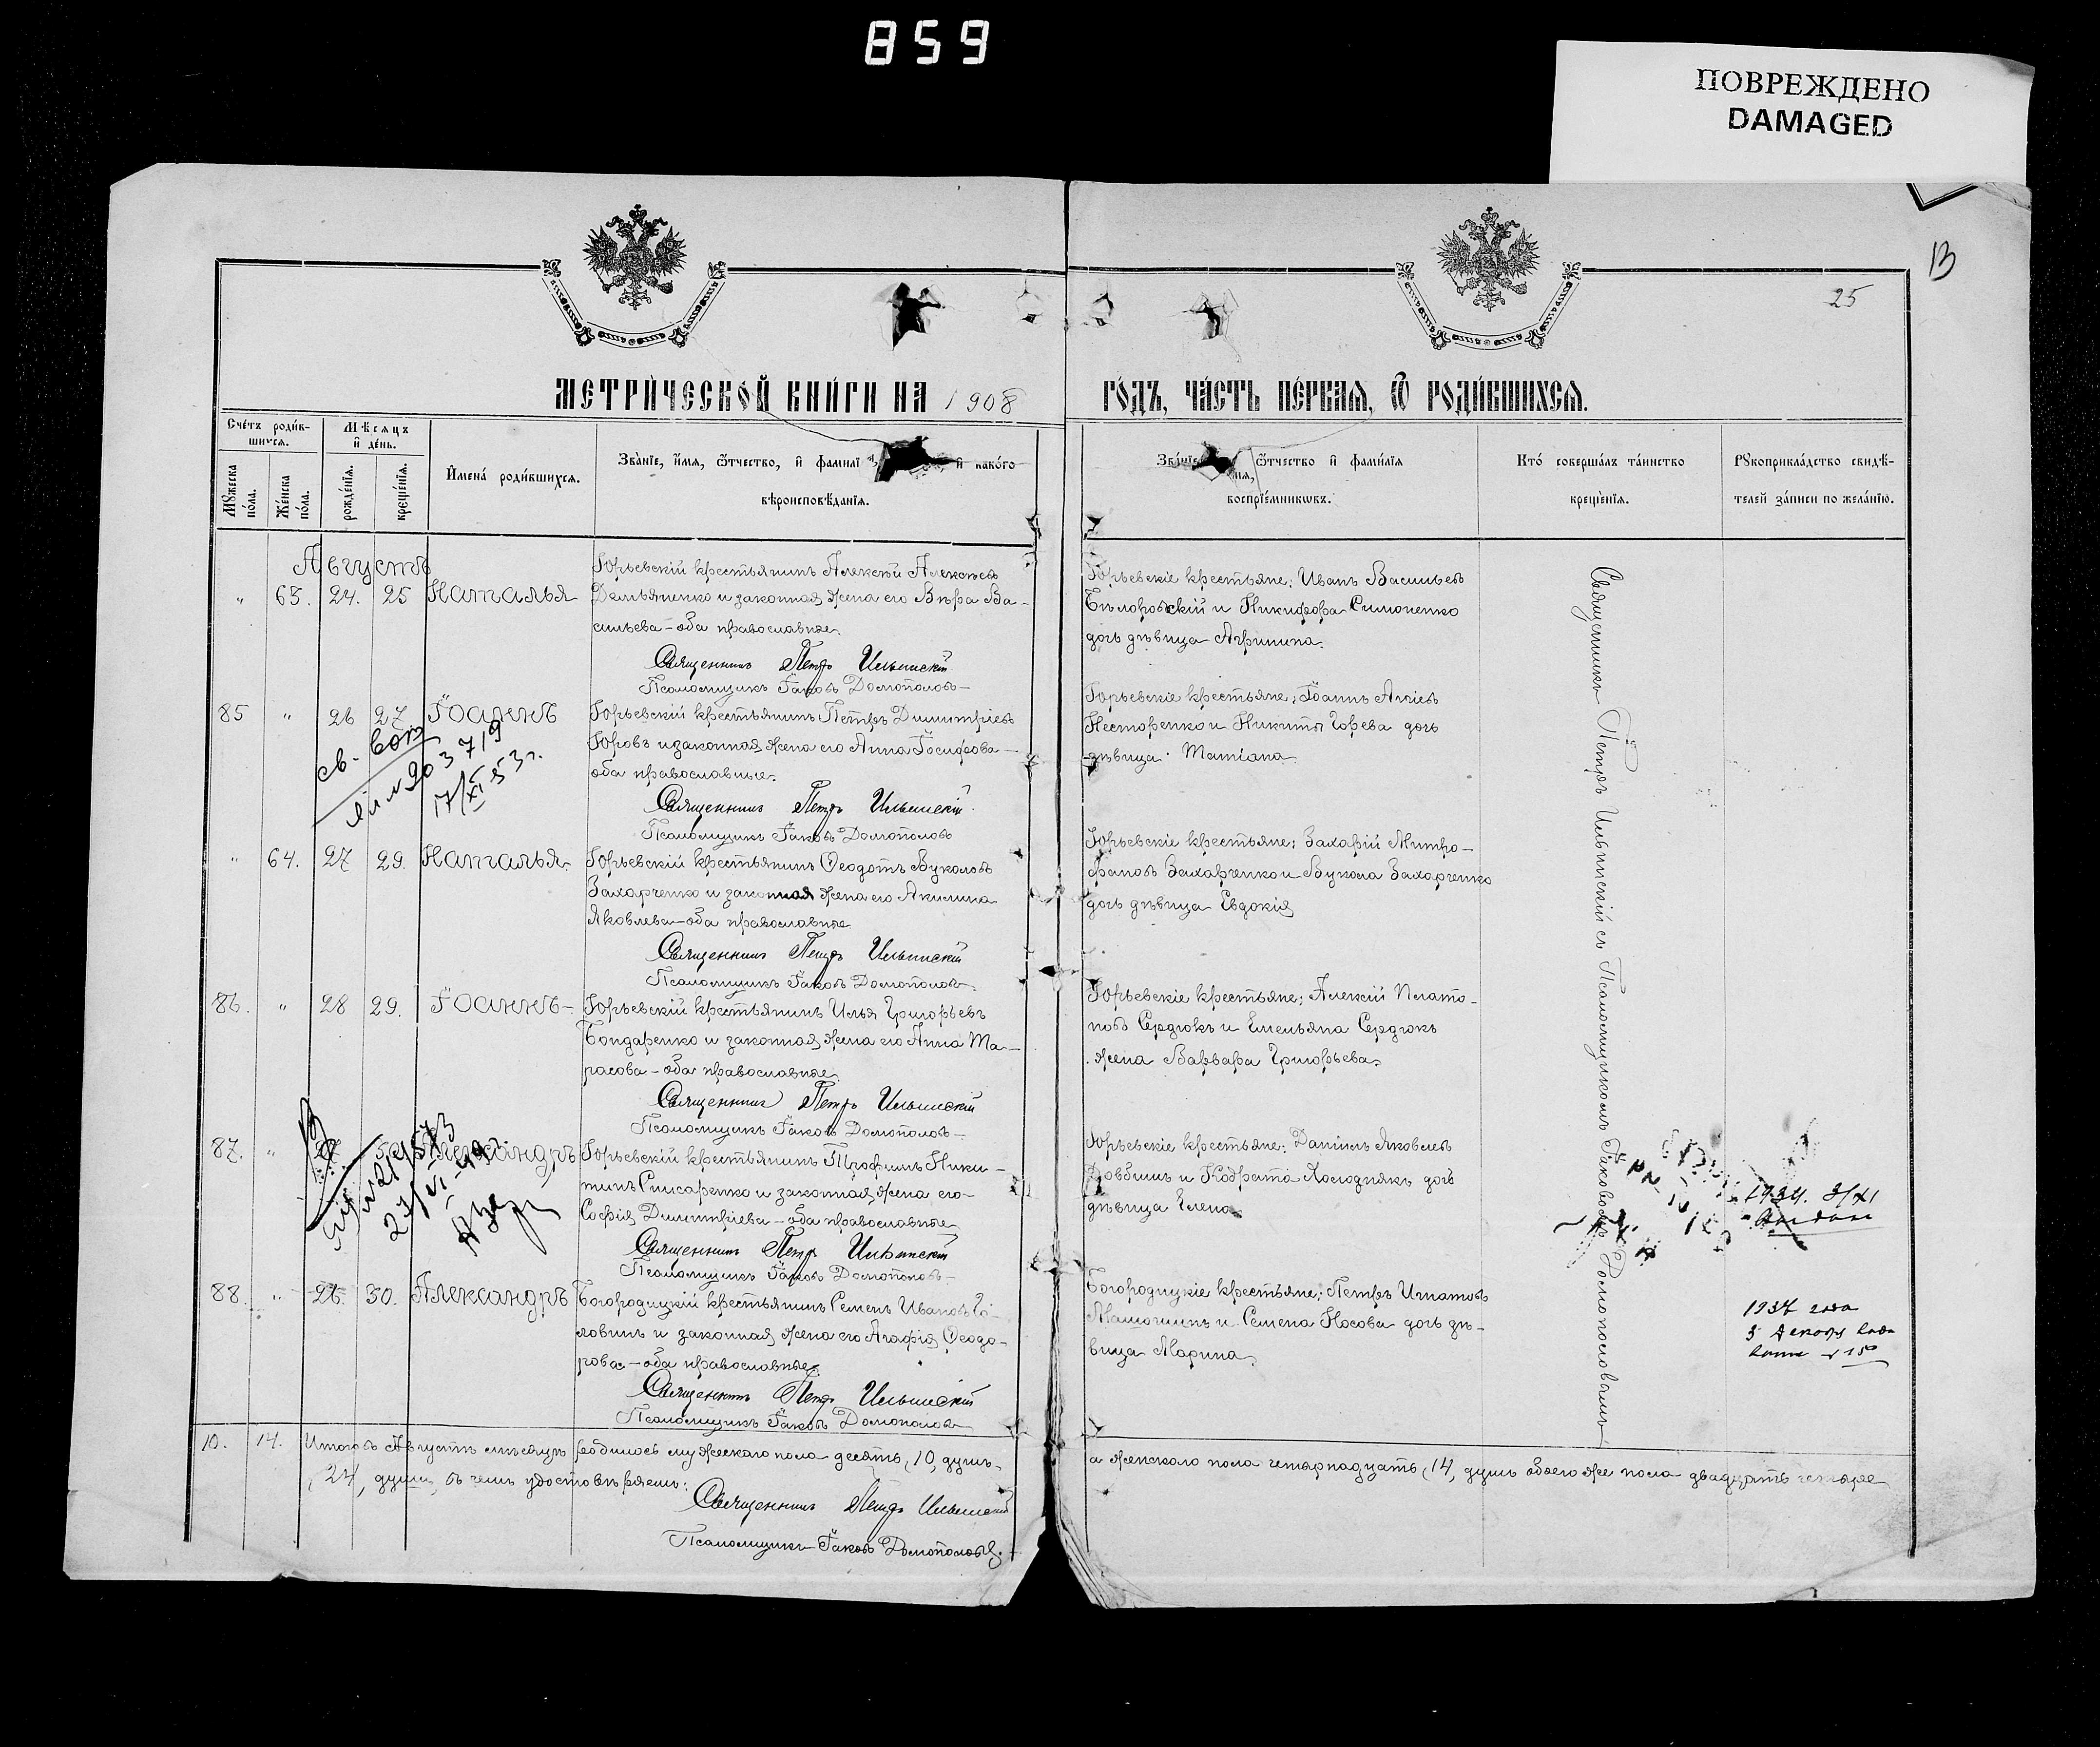 859
ПОВРЕЖДЕНО
DAMAGED
13
25
МЕТРИ́ЧЕСКОЙ КНИ́ГИ НА 1908
ГО́ДЪ, ЧА́СТЬ ПЕ́РВАЯ, Ѿ РОДИ́ВШИХСЯ.
Сче́тъ роди́в-
шихся.
Мѣсяцъ
и де́нь.
Мꙋжеска
по́ла.
Же́нска
по́ла.
рожде́нїя.
креще́нїя.
Имена́ роди́вшихся.
Зва́нїе, и́мя, ѿтчество, и фами́лї и како́го
вѣроисповѣ́данїя.
Зва́нїе ѿтчество и фами́лїя
мя,
воспрїе́мникѡвъ.
Кто́ соверша́лъ та́инство
креще́нїя.
Рꙋкоприкла́дство свидѣ́-
телей за́писи по жела́нїю.
Августъ
" 63. 24. 25 Наталья
Юрьевскій крестьянинъ Алексѣй Алексѣевъ
Демьяненко и законная жена его Вѣра Ва-
сильева – оба православные.
Священникъ Петръ Ильинскій
Псаломщикъ Іаковъ Домополовъ
Юрьевскіе крестьяне: Иванъ Васильевъ
Бѣлоровскій и Никифора Симоненко
дочь дѣвица Агрипина.
85 " 26 27 Іоаннъ
Юрьевскій крестьянинъ Петръ Димитріевъ
и законная жена его Анна Іосифова –
оба православные.
Священникъ Петръ Ильинскій
Псаломщикъ Іаковъ Домополовъ
Юрьевскіе крестьяне: Іоаннъ
Нестеренко и Никиты дочь
дѣвица Татіана
17/XI 53 г.
" 64. 27 29. Наталья.
Юрьевскій крестьянинъ Ѳеодотъ Вуколовъ
Захарченко и законная жена его Акилина
Яковлева – оба православные
Священникъ Петръ Ильинскій
Псаломщикъ Іаковъ Домополовъ
Юрьевскіе крестьяне: Захарій Митро-
фановъ Захарченко и Вукола Захарченко
дочь дѣвица Евдокія
86. " 28 29. Іоаннъ –
Юрьевскій крестьянинъ Илья Григорьевъ
Бондаренко и законная жена его Анна Та-
расова – оба православные.
Священникъ Петръ Ильинскій
Псаломщикъ Іаковъ Домополовъ –
Юрьевскіе крестьяне: Алексій Плато-
новъ Сердюкъ и Емельяна Сердюкъ
жена Варвара Григорьева.
87. " Александръ
Юрьевскій крестьянинъ Трофимъ Ники-
тинъ Писаренко и законная жена его
Софія Димитріева – оба православные
Священникъ Петръ Ильинскій
Псаломщикъ Іаковъ Домополовъ –
Юрьевскіе крестьяне: Даніилъ Яковлевъ
Довбишъ и Кодрата Холоднякъ дочь
дѣвица Елена
1934. 3/XI
88. " 26. 30. Александръ
Богородицкій крестьянинъ Семенъ Ивановъ Го-
ловинъ и законная жена его Агафія Ѳеодо-
рова – оба православные
Священникъ Петръ Ильинскій
Псаломщикъ Іаковъ Домополовъ
Богородицкіе крестьяне: Петръ Игнатовъ
и Семена Носова дочь дѣ-
вица Марина
1937 года
Священникъ Петръ Ильинскій съ Псаломщикомъ Іаковомъ
10. 14. Итого въ Августѣ мѣсяцѣ родилось мужескаго пола десять, 10, душъ,
а женскаго пола четырнадцать, 14, душъ обоего же пола двадцать четыре
, 24, души, въ чемъ удостовѣряемъ:
Священникъ Петръ Ильинскій
Псаломщикъ Іаковъ Домополовъ.